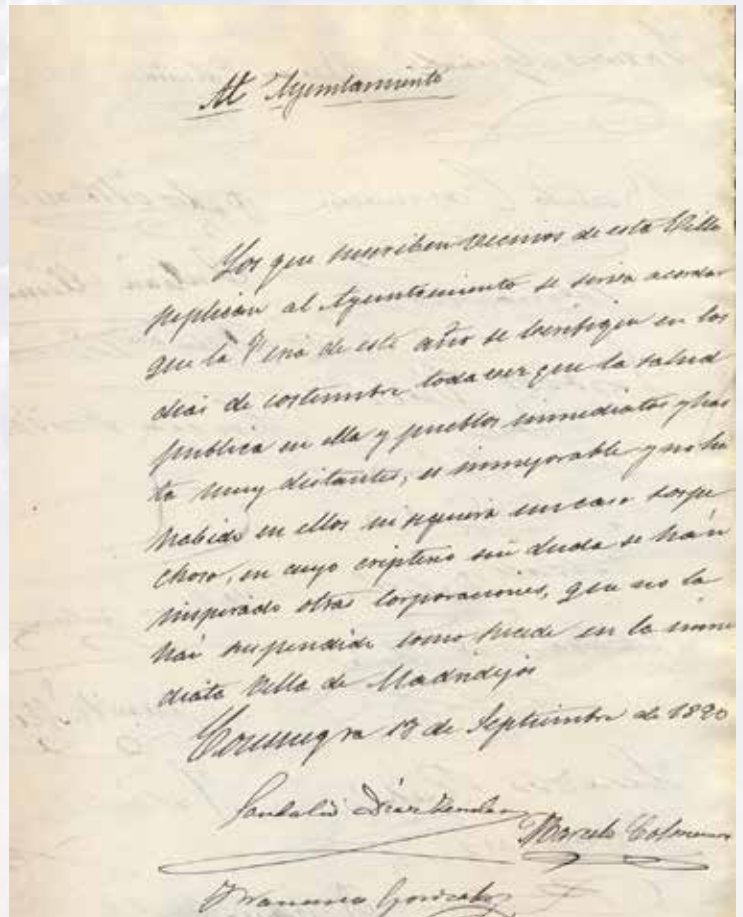 Al Ayuntamiento
Los que suscriben vecinos de esta Villa
suplican al Ayuntamiento se sirva acordar
que la Feria de este año se berifique en los
dias de costumbre toda vez que la salud
publica en ella y pueblos inmediatos y has
ta muy distantes, es inmejorable y no ha
habido en ellos ni siquiera un caso sospe
choso, en cuyo cripterio sin duda se han
inspirado otras corporaciones, que no la
han suspendido como sucede en la inme
diata Villa de Madridejos
Consuegra 13 de Septiembre de 1890
Sandalio Diaz
Marcelo Colmenar
Francisco Gonzalez